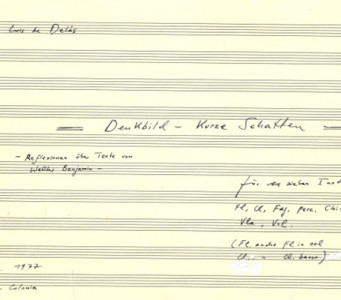 Luis de Delás
Denkbild - Kurze Schatten
- Reflexionen über Texte von
Walter Benjamin -
für
Fl, Cl, Fag, perc,
Vla, Vcl.
(Fl. anche Fl in sol
Cl. = Cl. basso)
1977
Colonia